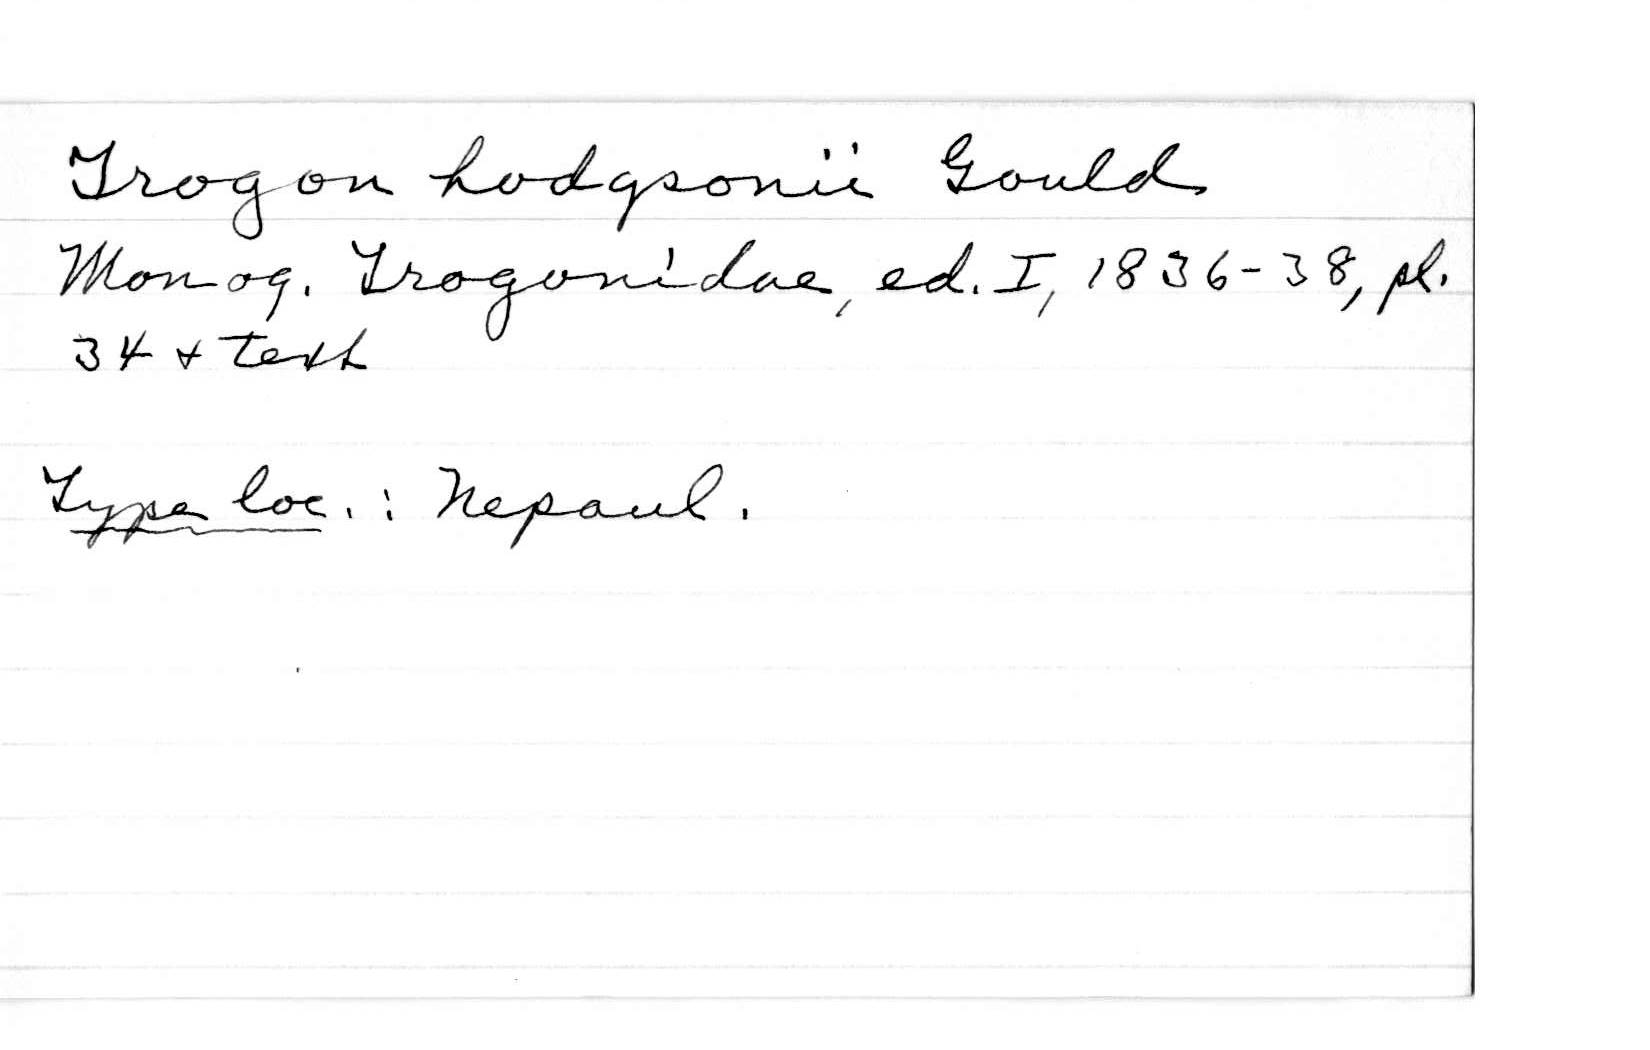 Trogon hodgsonii Gould
Monog. Trogonidae, ed. I, 1836-38, pl.
34 & text
Type loc.: Nepaul.